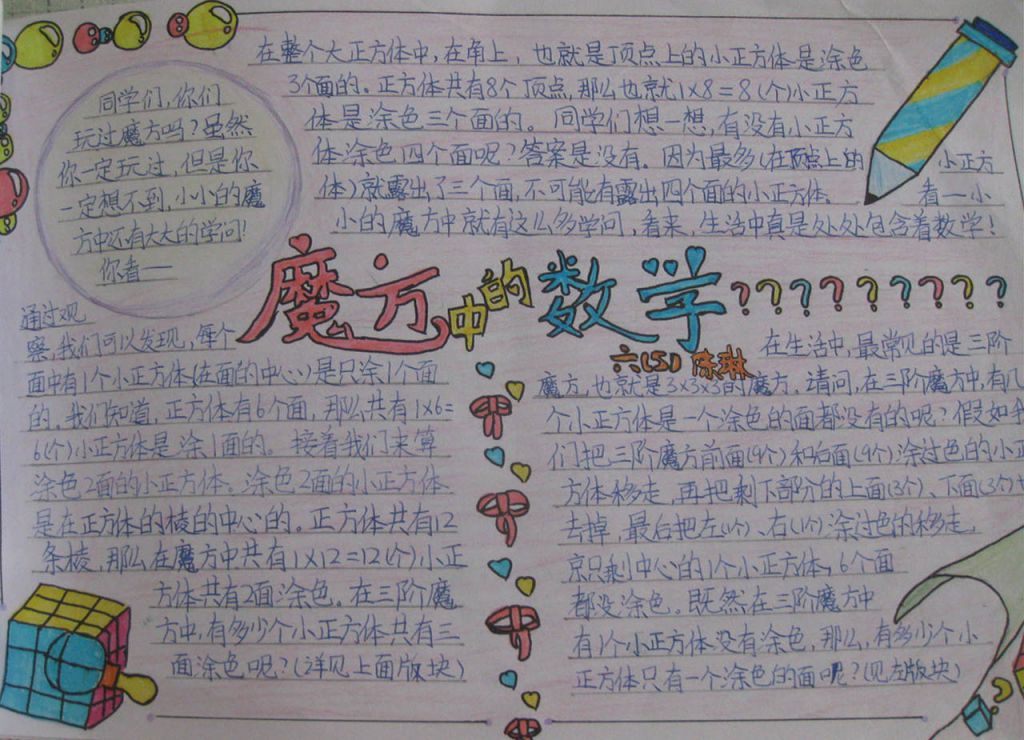 同学们,你们
玩过魔方吗?虽然
你一定玩过,但是你
一定想不到,小小的魔
方中还有大大的学问!
你看——
魔方中的数学?????????
六(5)陈琳
在生活中,最常见的是三阶
魔方,也就是3×3×3的魔方。请问,在三阶魔方中,有几
个小正方体是一个涂色的面都没有的呢?假如我
们把三阶魔方前面(9个)和后面(9个)涂过色的小正
方体移走,再把剩下部分的上面(3个)、下面(3个)
去掉,最后把左(1个)、右(1个)涂过色的移走,
就只剩中心的1个小正方体,6个面
都没涂色。既然在三阶魔方中
有1个小正方体没有涂色,那么,有多少个小
正方体只有一个涂色的面呢?(见左版块)
通过观
察,我们可以发现,每个
面中有1个小正方体(在面的中心)是只涂1个面
的。我们知道,正方体有6个面,那么共有1×6=
6(个)小正方体是涂1面的。接着我们来算
涂色2面的小正方体。涂色2面的小正方体
是在正方体的棱的中心的。正方体共有12
条棱,那么在魔方中共有1×12=12(个)小正
方体共有2面涂色。在三阶魔
方中,有多少个小正方体共有三
面涂色呢?(详见上面版块)
在整个大正方体中,在角上,也就是顶点上的小正方体是涂色
3个面的。正方体共有8个顶点,那么也就1×8=8(个)小正方
体是涂色三个面的。同学们想一想,有没有小正方
体涂色四个面呢?答案是没有。因为最多(在顶点上的 小正方
体)就露出了三个面,不可能有露出四个面的小正方体。 看一小
小的魔方中就有这么多学问,看来,生活中真是处处包含着数学!